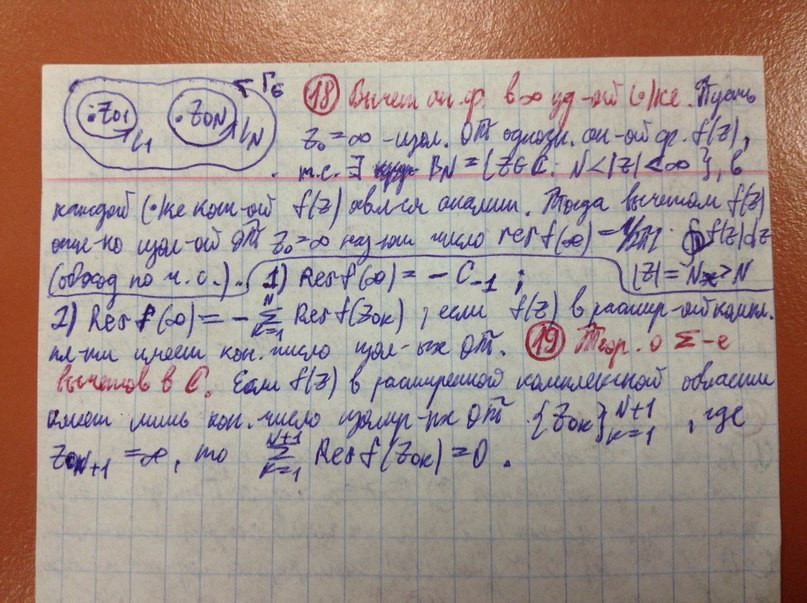 z01 l1 z0N lN ΓБ
18 Вычет ан. ф. в ∞ уд-ой (•)ке. Пусть
z0 = ∞ - изол. ОТ однозн. ан-ой ф. f(z),
т.е. ∃ BN = {z∈C: N<|z|<∞}, в
каждой (•)ке кот-ой f(z) явл-ся аналит. Тогда вычетом f(z)
отн-но изол-ой ОТ z0 = ∞ наз-ют число resf(∞) = 1/2πi · ∮f(z)dz
(обход по ч.с.). 1) Resf(∞) = - C-1 ; |z| = N' > N
2) Res f(∞) = - Σ(k=1..N) Resf(z0k), если f(z) в расшир-ой компл.
пл-ти имеет кон. число изол-ых ОТ. 19 Теор. о Σ-е
вычетов в C. Если f(z) в расширенной комплексной области
имеет лишь кон. число изолир-ых ОТ {z0k} N+1 k=1 , где
z0N+1 = ∞, то Σ(k=1..N+1) Resf(z0k) = 0.